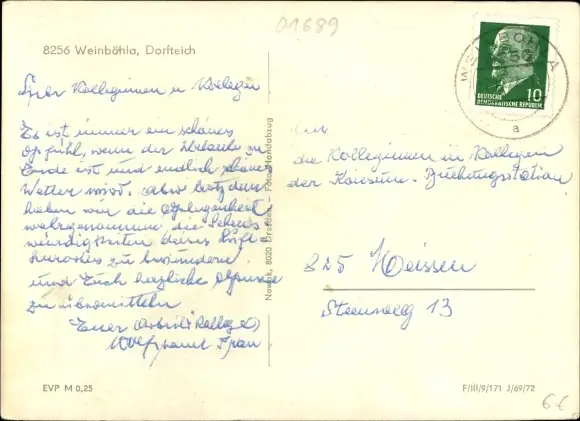 01689
8256 Weinböhla, Dorfteich
DEUTSCHE
DEMOKRATISCHE REPUBLIK
10
a
Liebe Kolleginnen u. Kollegen
Es ist immer ein schönes
Gefühl, wenn der Urlaub zu
Ende ist und endlich schönes
Wetter wird. Aber trotzdem
haben wir die Gelegenheit
wahrgenommen, die Sehens-
würdigkeiten dieses Luft-
kurortes zu bewundern
und Euch herzliche Grüsse
zu übermitteln
Euer Arbeitskollege
u. Frau
An
die Kolleginnen u. Kollegen
der
825 Meissen
13
Novak, 8020 Dresden - Foto-Handabzug
EVP M 0,25
F/III/9/171 J/69/72
6€